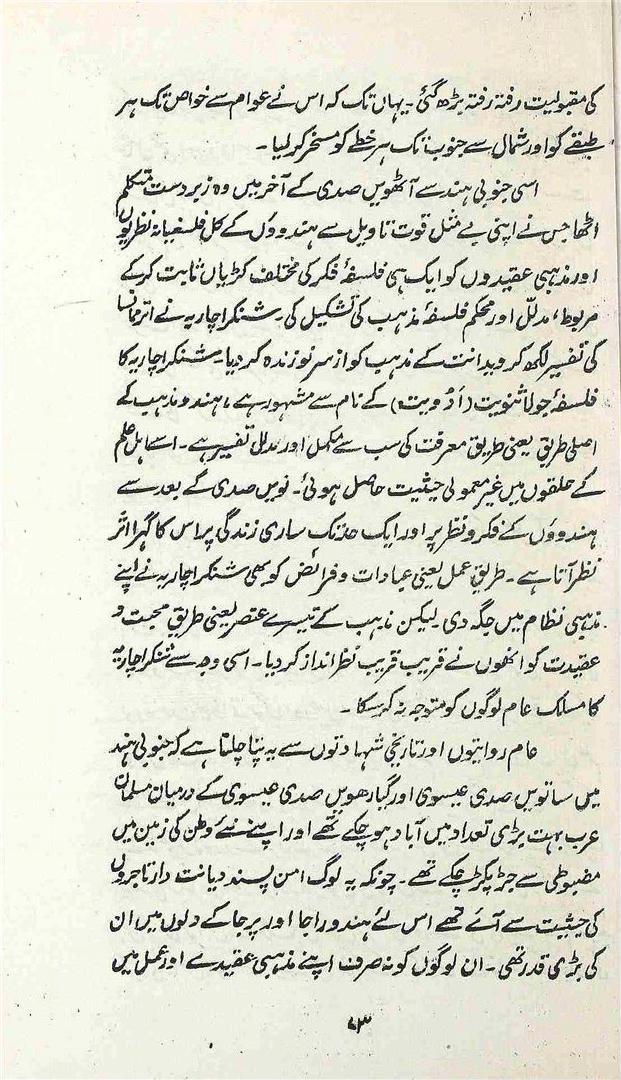 کی مقبولیت رفتہ رفتہ بڑھ گئی۔ یہاں تک کہ اس نے عوام سے خواص تک ہر
طبقے کو اور شمال سے جنوب تک ہر خطے کو مسخر کر لیا۔
اسی جنوبی ہند سے آٹھویں صدی کے آخر میں وہ زبردست متکلم
اٹھا جس نے اپنی بے مثل قوت تاویل سے ہندوؤں کے کل فلسفیانہ نظریوں
اور مذہبی عقیدوں کو ایک ہی فلسفۂ فکر کی مختلف کڑیاں ثابت کر کے
مربوط، مدلّل اور محکم فلسفۂ مذہب کی تشکیل کی۔ شنکر اچاریہ نے اتر مانسا
کی تفسیر لکھ کر ویدانت کے مذہب کو از سر نو زندہ کر دیا۔ شنکر اچاریہ کا
فلسفہ جو لاثنویت (اَدْویت) کے نام سے مشہور ہے، ہندو مذہب کے
اصلی طریق یعنی طریق معرفت کی سب سے مکمل اور مدلل تفسیر ہے۔ اسے اہل علم
کے حلقوں میں غیر معمولی حیثیت حاصل ہوئی۔ نویں صدی کے بعد سے
ہندوؤں کے فکر و نظر پر اور ایک حد تک ساری زندگی پر اس کا گہرا اثر
نظر آتا ہے۔ طریق عمل یعنی عبادات و فرائض کو بھی شنکر اچاریہ نے اپنے
مذہبی نظام میں جگہ دی۔ لیکن مذہب کے تیسرے عنصر یعنی طریق محبت و
عقیدت کو انھوں نے قریب قریب نظر انداز کر دیا۔ اسی وجہ سے شنکر اچاریہ
کا مسلک عام لوگوں کو متوجہ نہ کر سکا۔
عام روایتوں اور تاریخی شہادتوں سے یہ پتا چلتا ہے کہ جنوبی ہند
میں ساتویں صدی عیسوی اور گیارھویں صدی عیسوی کے درمیان مسلمان
عرب بہت بڑی تعداد میں آباد ہو چکے تھے اور اپنے نئے وطن کی زمین میں
مضبوطی سے جڑ پکڑ چکے تھے۔ چونکہ یہ لوگ امن پسند دیانت دار تاجروں
کی حیثیت سے آئے تھے اس لئے ہندو راجا اور پرجا کے دلوں میں ان
کی بڑی قدر تھی۔ ان لوگوں کو نہ صرف اپنے مذہبی عقیدے اور عمل میں
۷۳